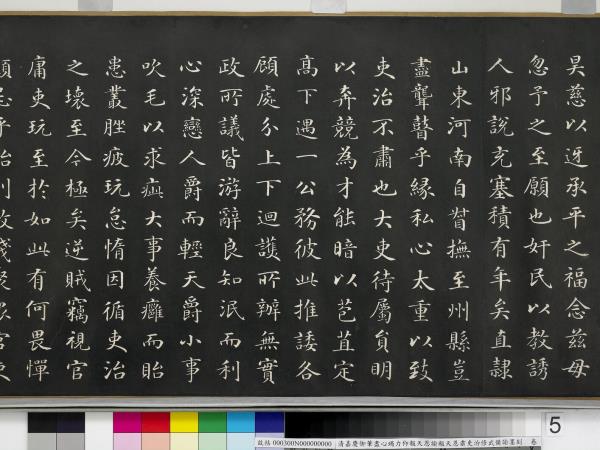 昊慈以迓承平之福念茲毋
忽予之至願也奸民以教誘
人邪說充塞積有年矣直隸
山東河南自督撫至州縣豈
盡聾瞽乎緣私心太重以致
吏治不肅也大吏待屬員明
以奔競為才能暗以苞苴定
高下遇一公務彼此推諉各
顧處分上下迴護所辦無實
政所議皆游辭良知泯而利
心深戀人爵而輕天爵小事
吹毛以求疵大事養癰而貽
患叢脞疲玩怠惰因循吏治
之壞至今極矣逆賊竊視官
庸吏玩至於如此有何畏憚
5
故帖 000300N000000000 清嘉慶御筆盡心竭力仰報天恩諭報天恩肅吏治修武備諭墨刻 卷